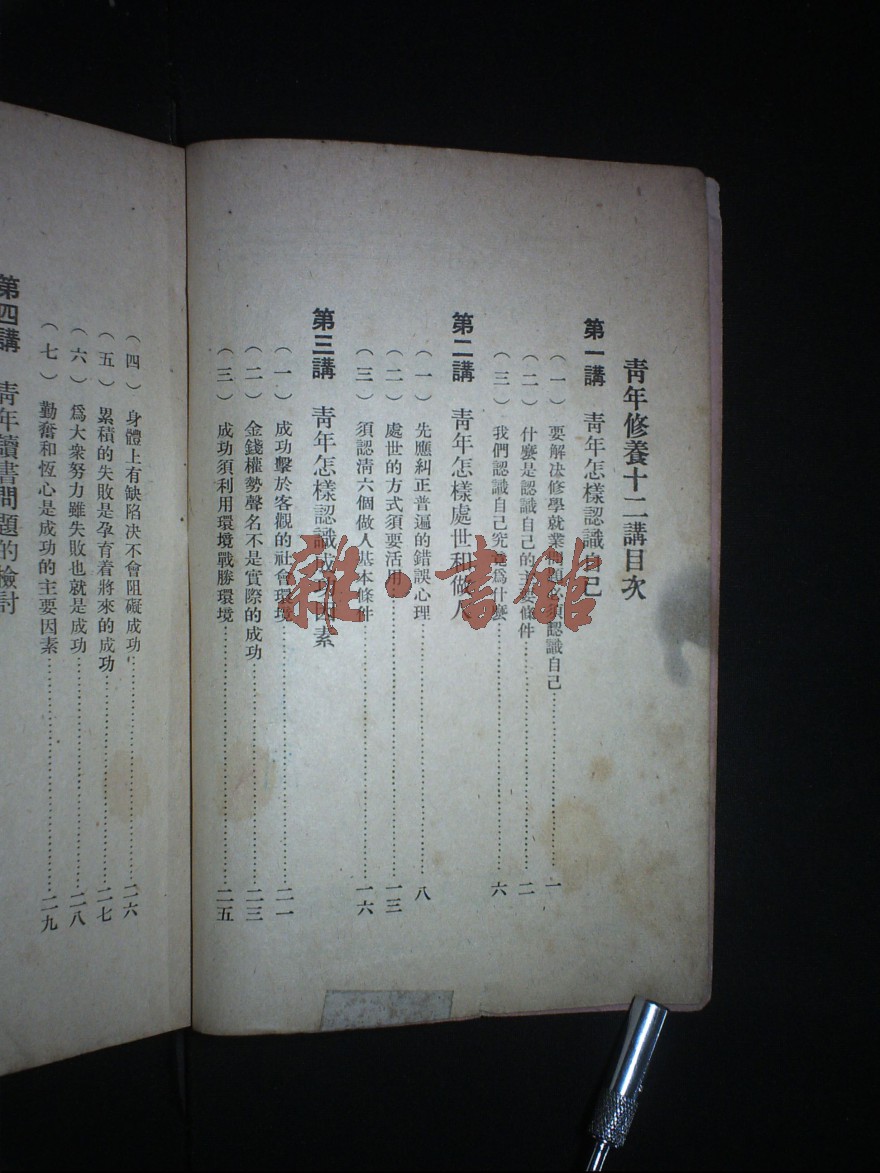 青年修養十二講目次
第一講 青年怎樣認識自己
(一) 要解決修學就業問題必須認識自己……一
(二) 什麼是認識自己的主要條件……二
(三) 我們認識自己究竟爲什麼……六
第二講 青年怎樣處世和做人
(一) 先應糾正普遍的錯誤心理……八
(二) 處世的方式須要活用……一三
(三) 須認清六個做人基本條件……一六
第三講 青年怎樣認識成功因素
(一) 成功擊於客觀的社會環境……二一
(二) 金錢權勢聲名不是實際的成功……二三
(三) 成功須利用環境戰勝環境……二五
(四) 身體上有缺陷決不會阻礙成功……二六
(五) 累積的失敗是孕育着將來的成功……二七
(六) 爲大衆努力雖失敗也就是成功……二八
(七) 勤奮和恆心是成功的主要因素……二九
第四講 青年讀書問題的檢討
雜·書館